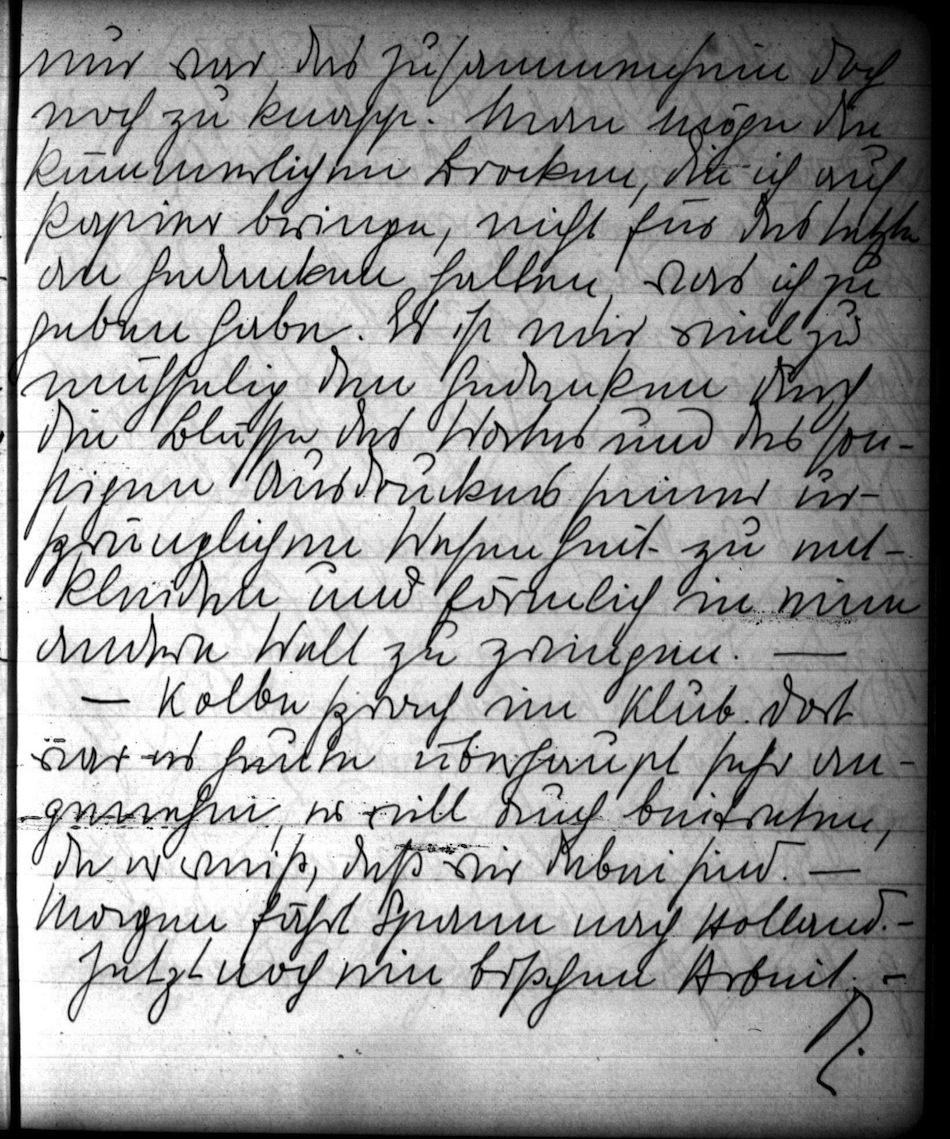 nur war das Zusammensein doch
noch zu knapp. Man möge die
kümmerlichen Brocken, die ich auf
Papier bringe, nicht für das letzte
an Gedanken halten, was ich zu
geben habe. Es ist mir viel zu
mühselig den Gedanken durch
die Blässe des Wortes und des son-
stigen Ausdruckes seiner ur-
sprünglichen Wesenheit zu ent-
kleiden und förmlich in eine
andere Welt zu zwingen. —
— Kolbe sprach im Klub. Dort
war es heute überhaupt sehr an-
genehm, er will auch beitreten,
da er weiß, daß wir dabei sind. —
Morgen fährt Spann nach Holland. -
Jetzt noch ein bißchen Arbeit. -